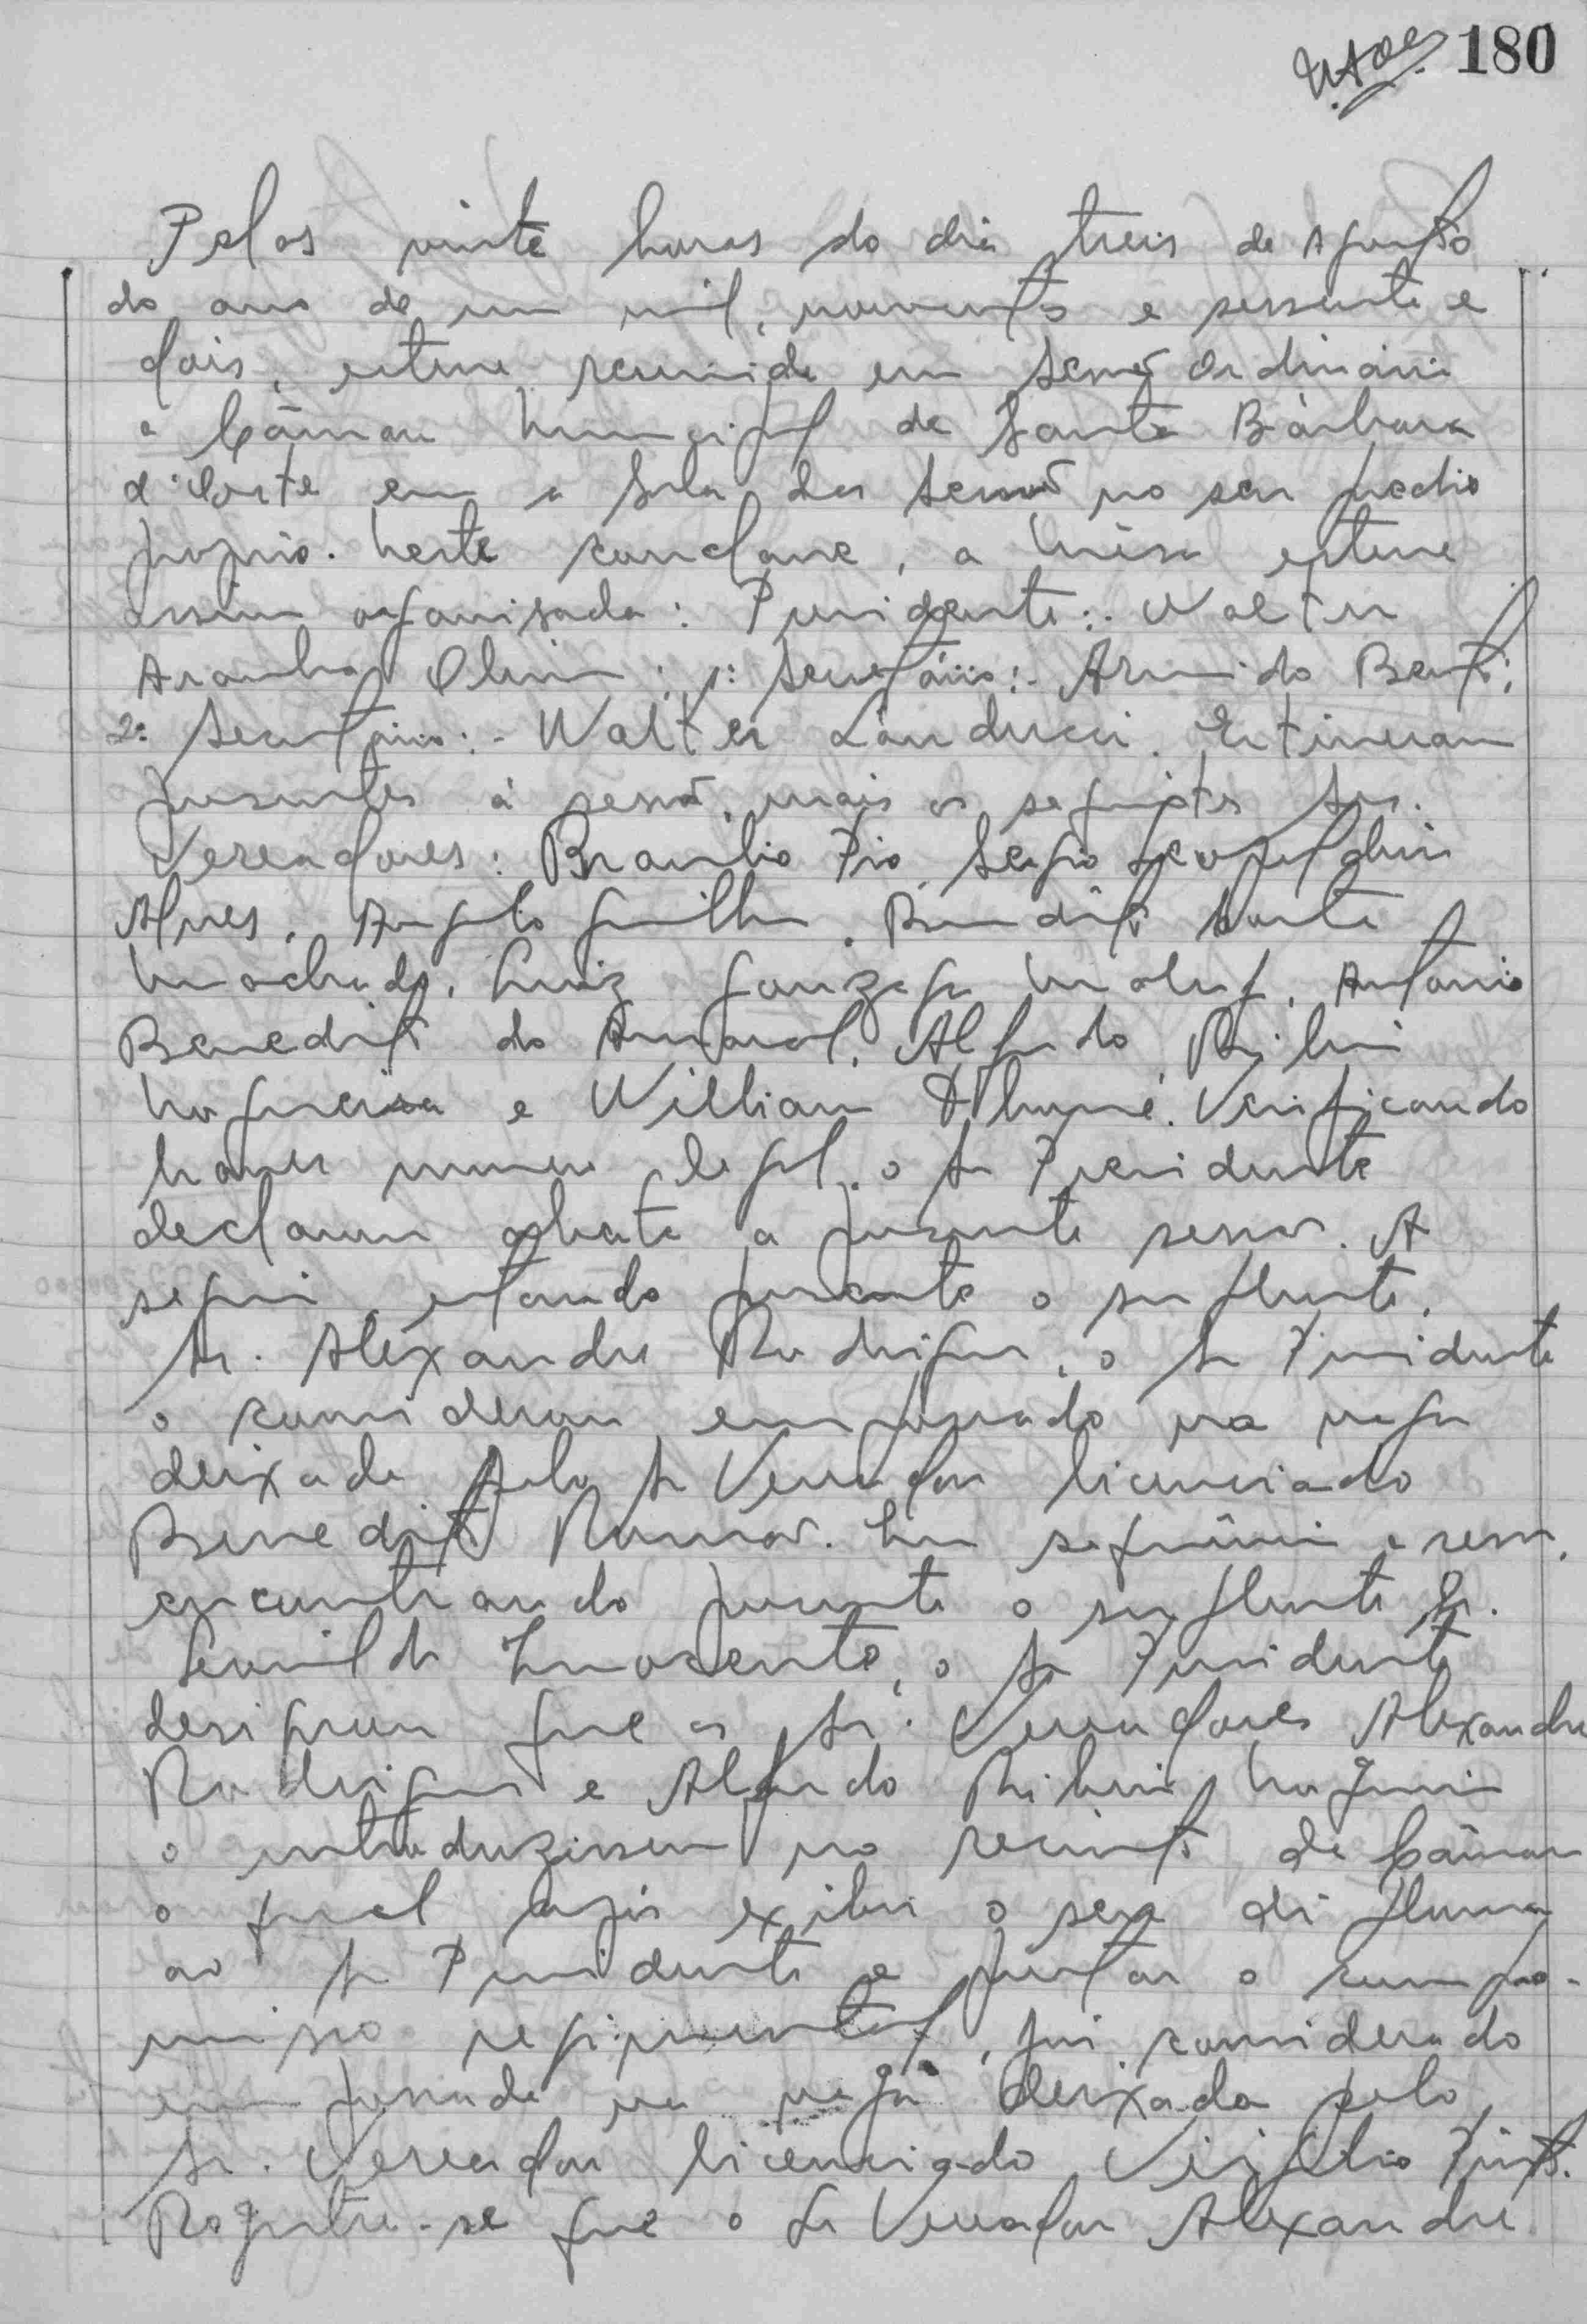 180
Pelas vinte horas do dia treis de Agosto
do ano de um mil, novecentos e sessenta e
dois, esteve reunida em Sessão Ordinária
a Câmara Municipal de Santa Bárbara
d'Oeste em a Sala das Sessões no seu predio
proprio. Neste conclave, a Mêsa esteve
assim organisada: Presidente:- Walter
Aranha Oliveira; 1º Secretário:- Armindo Bento;
2º Secretário:- Walter Landucci. Estiveram
presentes à sessão, mais os seguintes Srs.
Vereadores: Braulio Pio, Sergio Leopoldino
Alves, Angelo Giubbina, Benedito Duarte
Machado, Luiz Gonzaga Maluf, Antonio
Benedito do Amaral, Alfredo Ribeiro
Nogueira e Willian D'huyné. Verificando
haver numero legal, o Sr Presidente
declarou aberta a presente sessão. A
seguir, estando presente o suplente,
Sr. Aléxandre Rodrigues, o Sr Presidente
o considerou empossado na vaga
deixada pelo Sr Vereador licenciado
Benedito Romano. Em seguência e
encontrando presente o suplente Sr.
Leonildo Innocente, o Sr Presidente
designou que os Srs. Vereadores Alexandre
Rodrigues e Alfredo Ribeiro Nogueira
o introduzissem no recinto da Câmara
o qual após exibir o seu diploma
ao Sr Presidente e prestar o compro-
misso regimental, foi considerado
empossado na vaga deixada pelo
Sr. Vereador licenciado Virgilio Pinto.
Registre-se que o Sr Vereador Alexandre